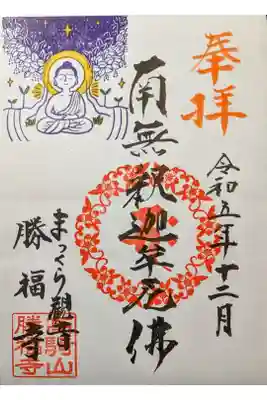 奉拝
令和五年十二月
南無釈迦牟尼佛
まっくら観音
勝福寺